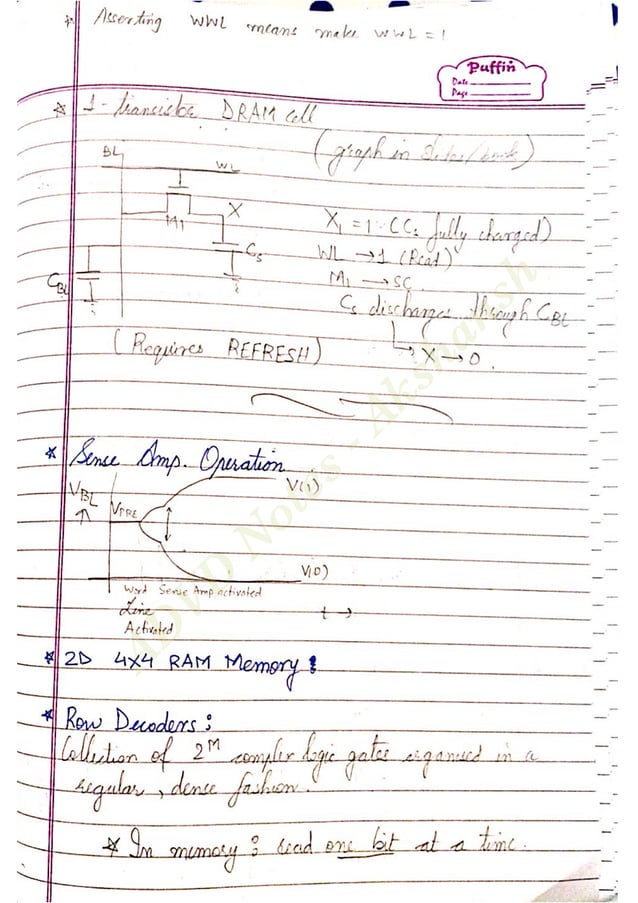 * Asserting WWL means make WWL = 1
Puffin
Date
Page
* 1-transistor DRAM cell
(graph in slides/book)
BL
WL
M1
X
Cs
CBL
X1 = 1 (Cs fully charged)
WL → 1 (Read)
M1 → SC
Cs discharges through CBL
→ X → 0.
(Requires REFRESH)
* Sense Amp. Operation
VBL
↑
VPRE
V(1)
V(0)
Word Sense Amp activated
Line
Activated
t →
* 2D 4x4 RAM Memory :
* Row Decoders :
Collection of 2^M complex logic gates organised in a
regular, dense fashion.
* In memory : read one bit at a time.
Notes - Akshansh